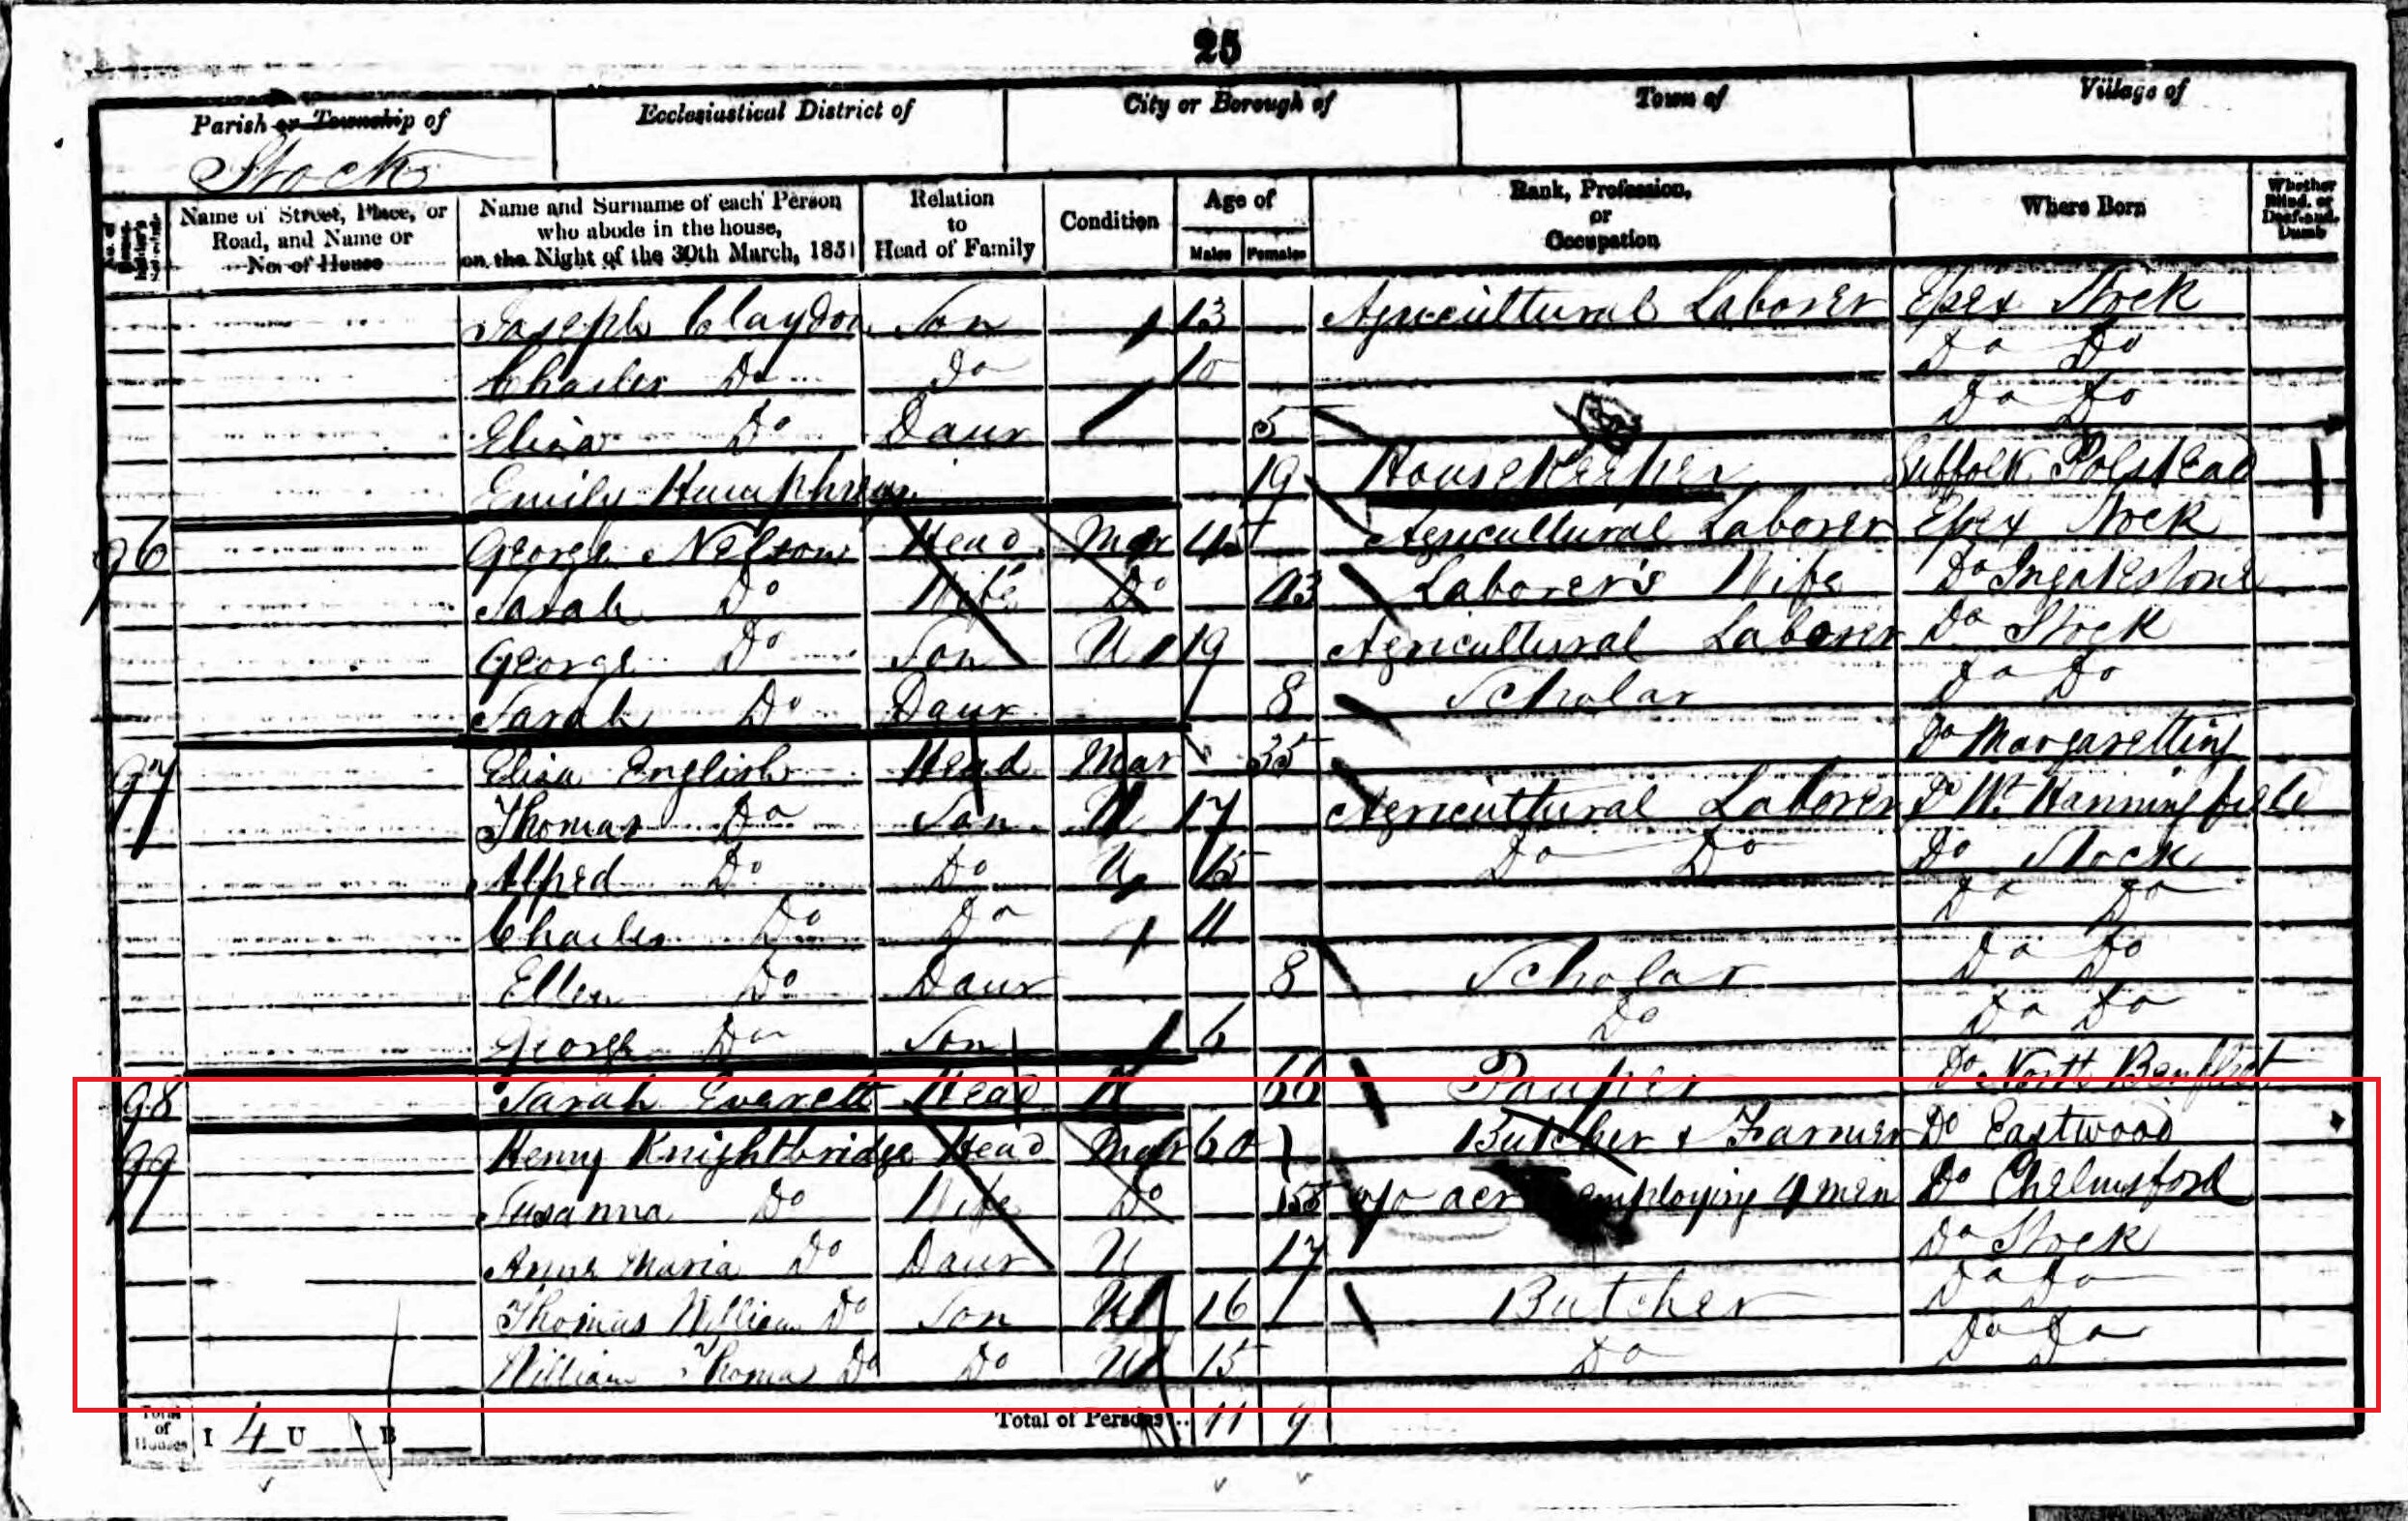 25
Parish or Township of
Ecclesiastical District of
City or Borough of
Town of
Village of
Stock
Name of Street, Place, or Road, and Name or No. of House
Name and Surname of each Person who abode in the house, on the Night of the 30th March, 1851
Relation to Head of Family
Condition
Age of
Males Females
Rank, Profession, or Occupation
Where Born
Whether Blind, or Deaf-and-Dumb
Joseph Claydon Son 13 Agricultural Laborer Essex Stock
Charles Do Do 10 Do Do
Eliza Do Daur 5 Do Do
Emily Humphreys 19 Housekeeper Suffolk Polstead
96 George Nelson Head Mar 45 Agricultural Laborer Essex Stock
Sarah Do Wife Do 43 Laborer's Wife Do Ingatestone
George Do Son U 19 Agricultural Laborer Do Stock
Sarah Do Daur 8 Scholar Do Do
97 Eliza English Head Mar 35 Do Margaretting
Thomas Do Son U 17 Agricultural Laborer Do Wt Hanningfield
Alfred Do Do U 15 Do Do Do Stock
Charles Do Do 11 Do Do
Ellen Do Daur 8 Scholar Do Do
George Do Son 6 Do Do Do
98 Sarah Everett Head 66 Pauper Do North Benfleet
99 Henry Knightbridge Head Mar 60 Butcher & Farmer Do Eastwood
Susanna Do Wife Do 55 employing 4 men Do Chelmsford
Anna Maria Do Daur U 17 Do Stock
Thomas William Do Son U 16 Butcher Do Do
William Thomas Do Do U 15 Do Do Do
Total of Houses I 4 U B Total of Persons.. 11 9